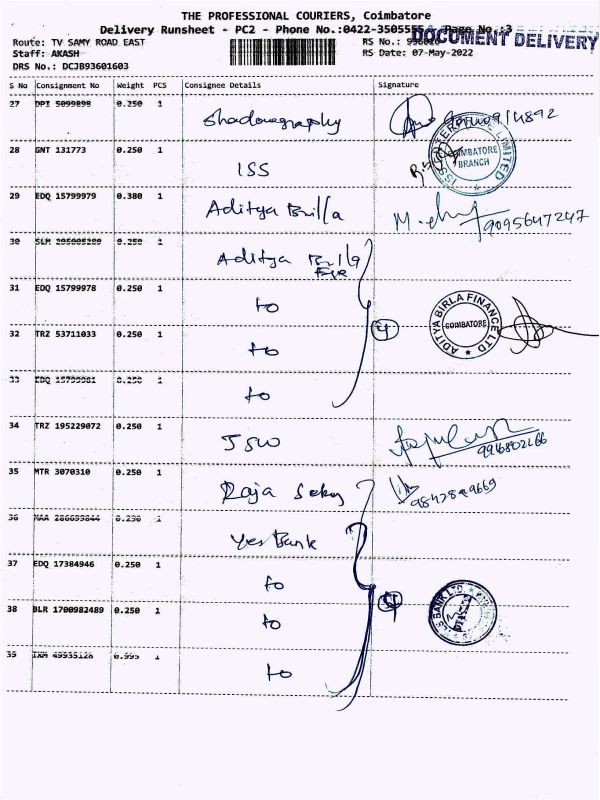 THE PROFESSIONAL COURIERS, Coimbatore
Delivery Runsheet - PC2 - Phone No.:0422-3505555 Page No.:3
DOCUMENT DELIVERY
Route: TV SAMY ROAD EAST RS No.:
Staff: AKASH RS Date: 07-May-2022
DRS No.: DCJB93601603
S No Consignment No Weight PCS Consignee Details Signature
27 DPI 5099898 0.250 1 Shadowgraphy
28 GNT 131773 0.250 1 ISS COIMBATORE BRANCH LIMITED
29 EDQ 15799979 0.380 1 Aditya Birlla 9095647247
30 SLM 0.250 1 Aditya Birla
31 EDQ 15799978 0.250 1 to
ADITYA BIRLA FINANCE LTD COIMBATORE
32 TRZ 53711033 0.250 1 to 4
33 EDQ 15799981 0.250 1 to
34 TRZ 195229072 0.250 1 JSW
35 MTR 3070310 0.250 1 Raja
36 MAA 1 Yes Bank
37 EDQ 17384946 0.250 1 to
38 BLR 1700982489 0.250 1 to 4 BANK LTD
39 49935128 0.995 1 to